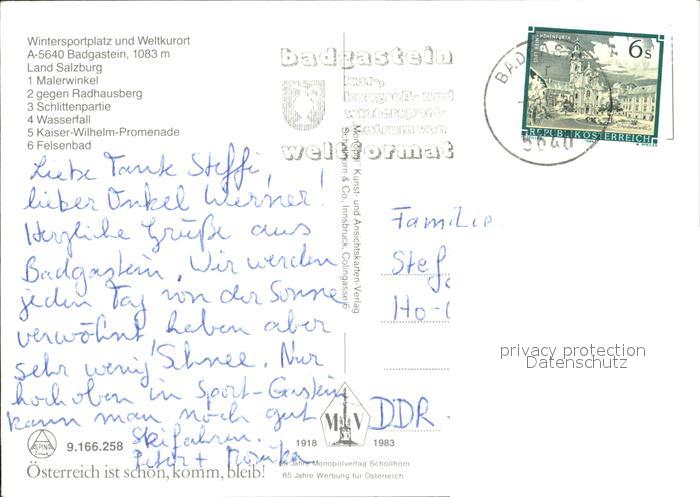 Wintersportplatz und Weltkurort
A-5640 Badgastein, 1083 m
Land Salzburg
1 Malerwinkel
2 gegen Radhausberg
3 Schlittenpartie
4 Wasserfall
5 Kaiser-Wilhelm-Promenade
6 Felsenbad
badgastein
kur-,
kongreß- und
wintersport-
zentrum von
weltformat
6s
REPUBLIK ÖSTERREICH
5640
Liebe Tante Steffi,
lieber Onkel Werner!
Herzliche Grüße aus
Badgastein. Wir werden
jeden Tag von der Sonne
verwöhnt, haben aber
sehr wenig Schnee. Nur
hoch oben in Sport-Gastein
kann man noch gut
Skifahren.
Peter + Monika
Monopol Kunst- und Ansichtskarten-Verlag
Schöllhorn & Co., Innsbruck, Colingasse 6
Familie
Stef
Ho-
DDR
privacy protection
Datenschutz
ALPINA
9.166.258
Österreich ist schön, komm, bleib!
M V
1918 1983
65 Jahre Monopolverlag Schöllhorn
65 Jahre Werbung für Österreich